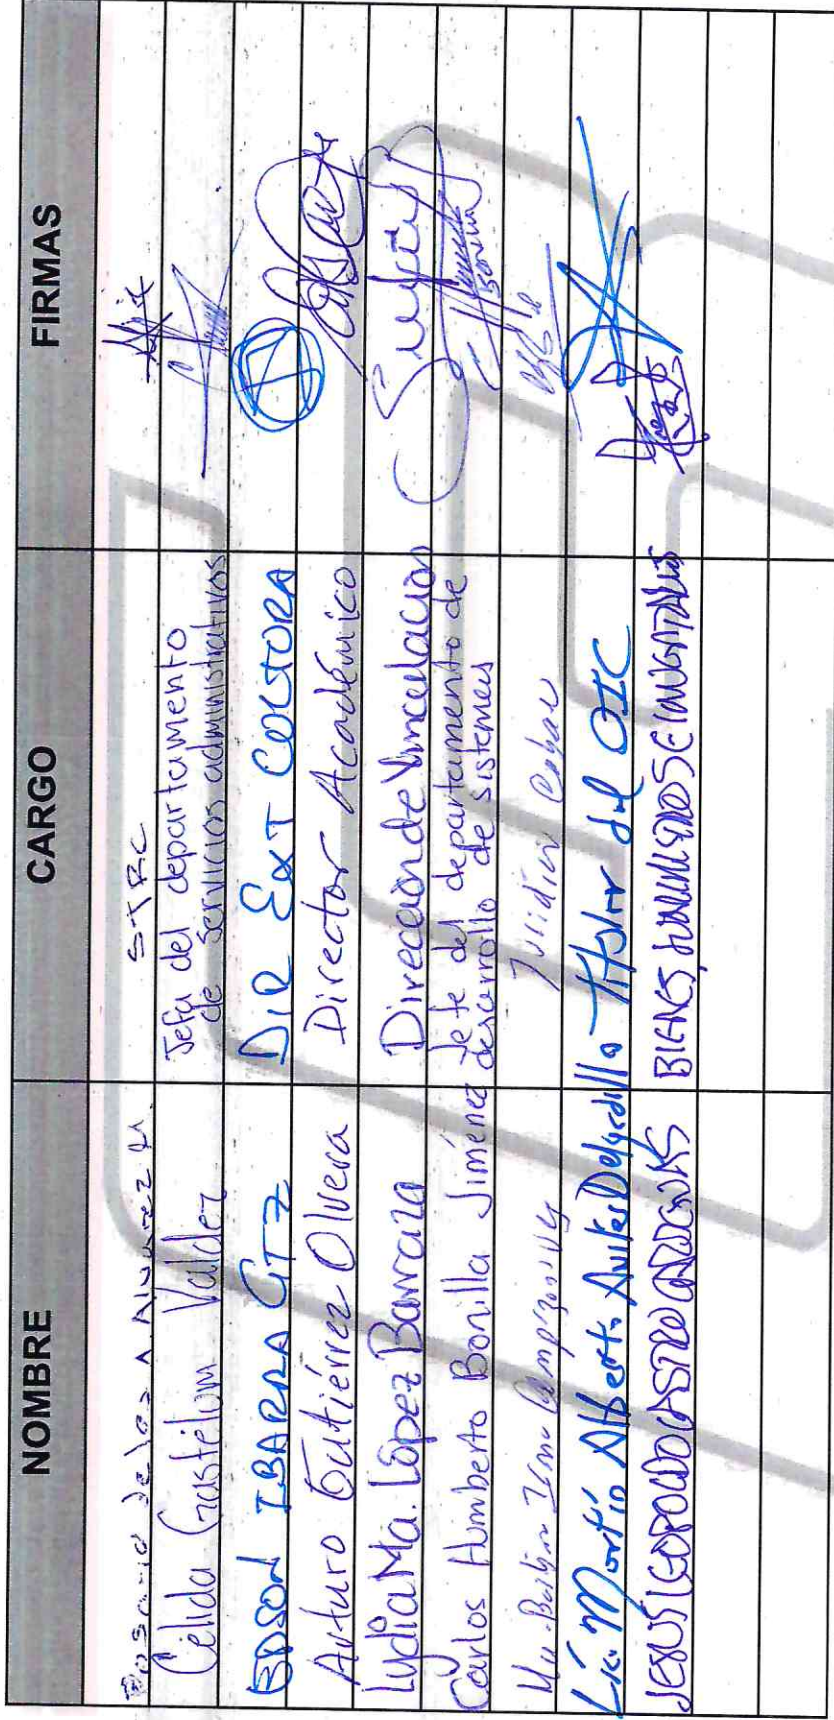 NOMBRE CARGO FIRMAS
Rosario de los A. Alvarez STRC
Célida Gastélum Valdez Jefa del departamento
de servicios administrativos
EDSON IBARRA GTZ DIR EXT CULTURA
Arturo Gutiérrez Olvera Director Académico
Lydia Ma. López Barraza Dirección de Vinculación
Carlos Humberto Bonilla Jiménez Jefe del departamento de
desarrollo de sistemas
Jurídico
Lic. Martín Alberto Aviles Delgadillo Titular del OIC
JESUS LEOPOLDO CASTRO BIENES E INVENTARIOS